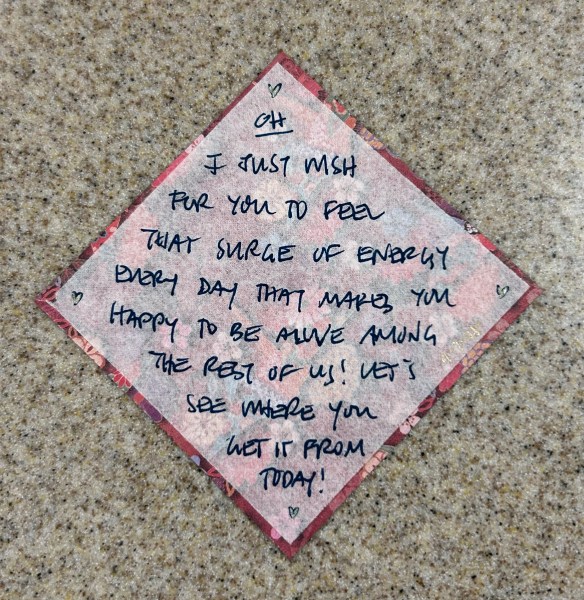 OH
I JUST WISH
FOR YOU TO FEEL
THAT SURGE OF ENERGY
EVERY DAY THAT MAKES YOU
HAPPY TO BE ALIVE AMONG
THE REST OF US! LET'S
SEE WHERE YOU
GET IT FROM
TODAY!